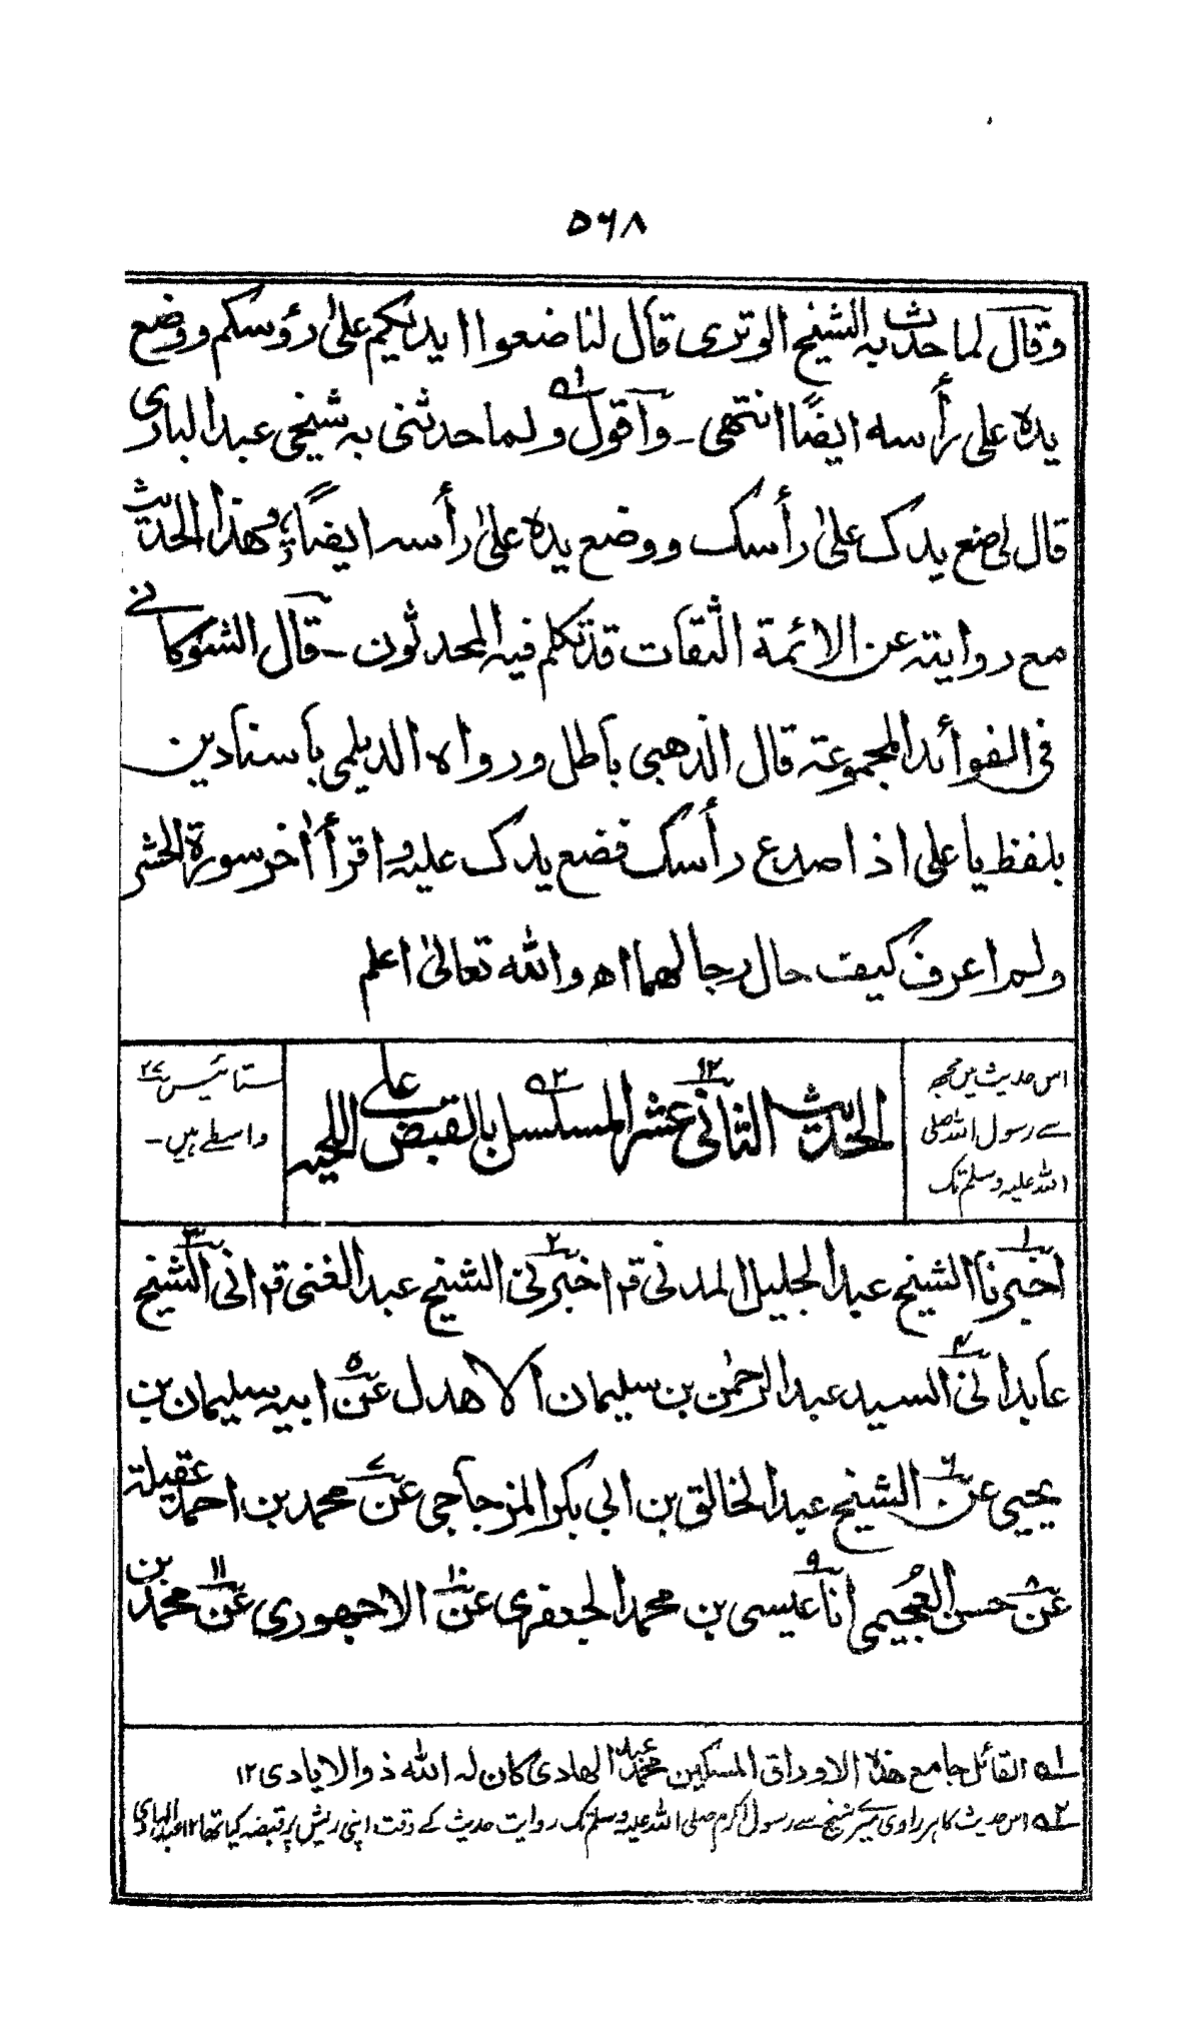 ۵۶۸
وقال لما حدث به الشيخ الوترى قال لنا ضعوا ايديكم علىٰ رؤسكم ووضع
يده على رأسه ايضًا انتهى ۔ وآقول ؎۱ ولما حدثنى به شيخى عبد البارى
قال لى ضع يدك علىٰ رأسك ووضع يده علىٰ رأسه ايضًا، وهذا الحديث
مع روايته عن الائمة الثقات قد تكلم فيه المحدثون ۔ قال الشوكانى
فى الفوائد المجموعة قال الذهبى باطل ورواه الديلمى باسنادين
بلفظ يا على اذا صدع رأسك فضع يدك عليه واقرأ اٰخر سورة الحشر
ولم اعرف كيف حال رجالهما اھ والله تعالىٰ اعلم
اس حدیث میں مجھ
سے رسول اللہ صلی
اللہ علیہ وسلم تک
الحديث الثانى عشر ۱۲ المسلسل ؎۲ بالقبض على اللحية
ستائیس ۲۷
واسطے ہیں ۔
اخبرنا ۱ الشيخ عبد الجليل المدنى قال اخبرنى ۲ الشيخ عبد الغنى قال انى ۳ الشيخ
عابد انى ۴ السيد عبد الرحمٰن بن سليمان الاهدل عن ۵ ابيه سليمان بن
يحيى عن ۶ الشيخ عبد الخالق بن ابى بكر المزجاجى عن ۷ محمد بن احمد عقيلة
عن ۸ حسن العُجيمى انا ۹ عيسى بن محمد الجعفرى عن ۱۰ الاجهورى عن ۱۱ محمد بن
؎۱ القائل جامع هذه الاوراق المسكين محمد عبد الهادى كان له الله ذو الايادى ۱۲
؎۲ اس حدیث کا ہر راوی میرے شیخ سے رسول اکرم صلی اللہ علیہ وسلم تک روایت حدیث کے وقت اپنی ریش پر قبضہ کیا تھا ۱۲ عبد الہادی